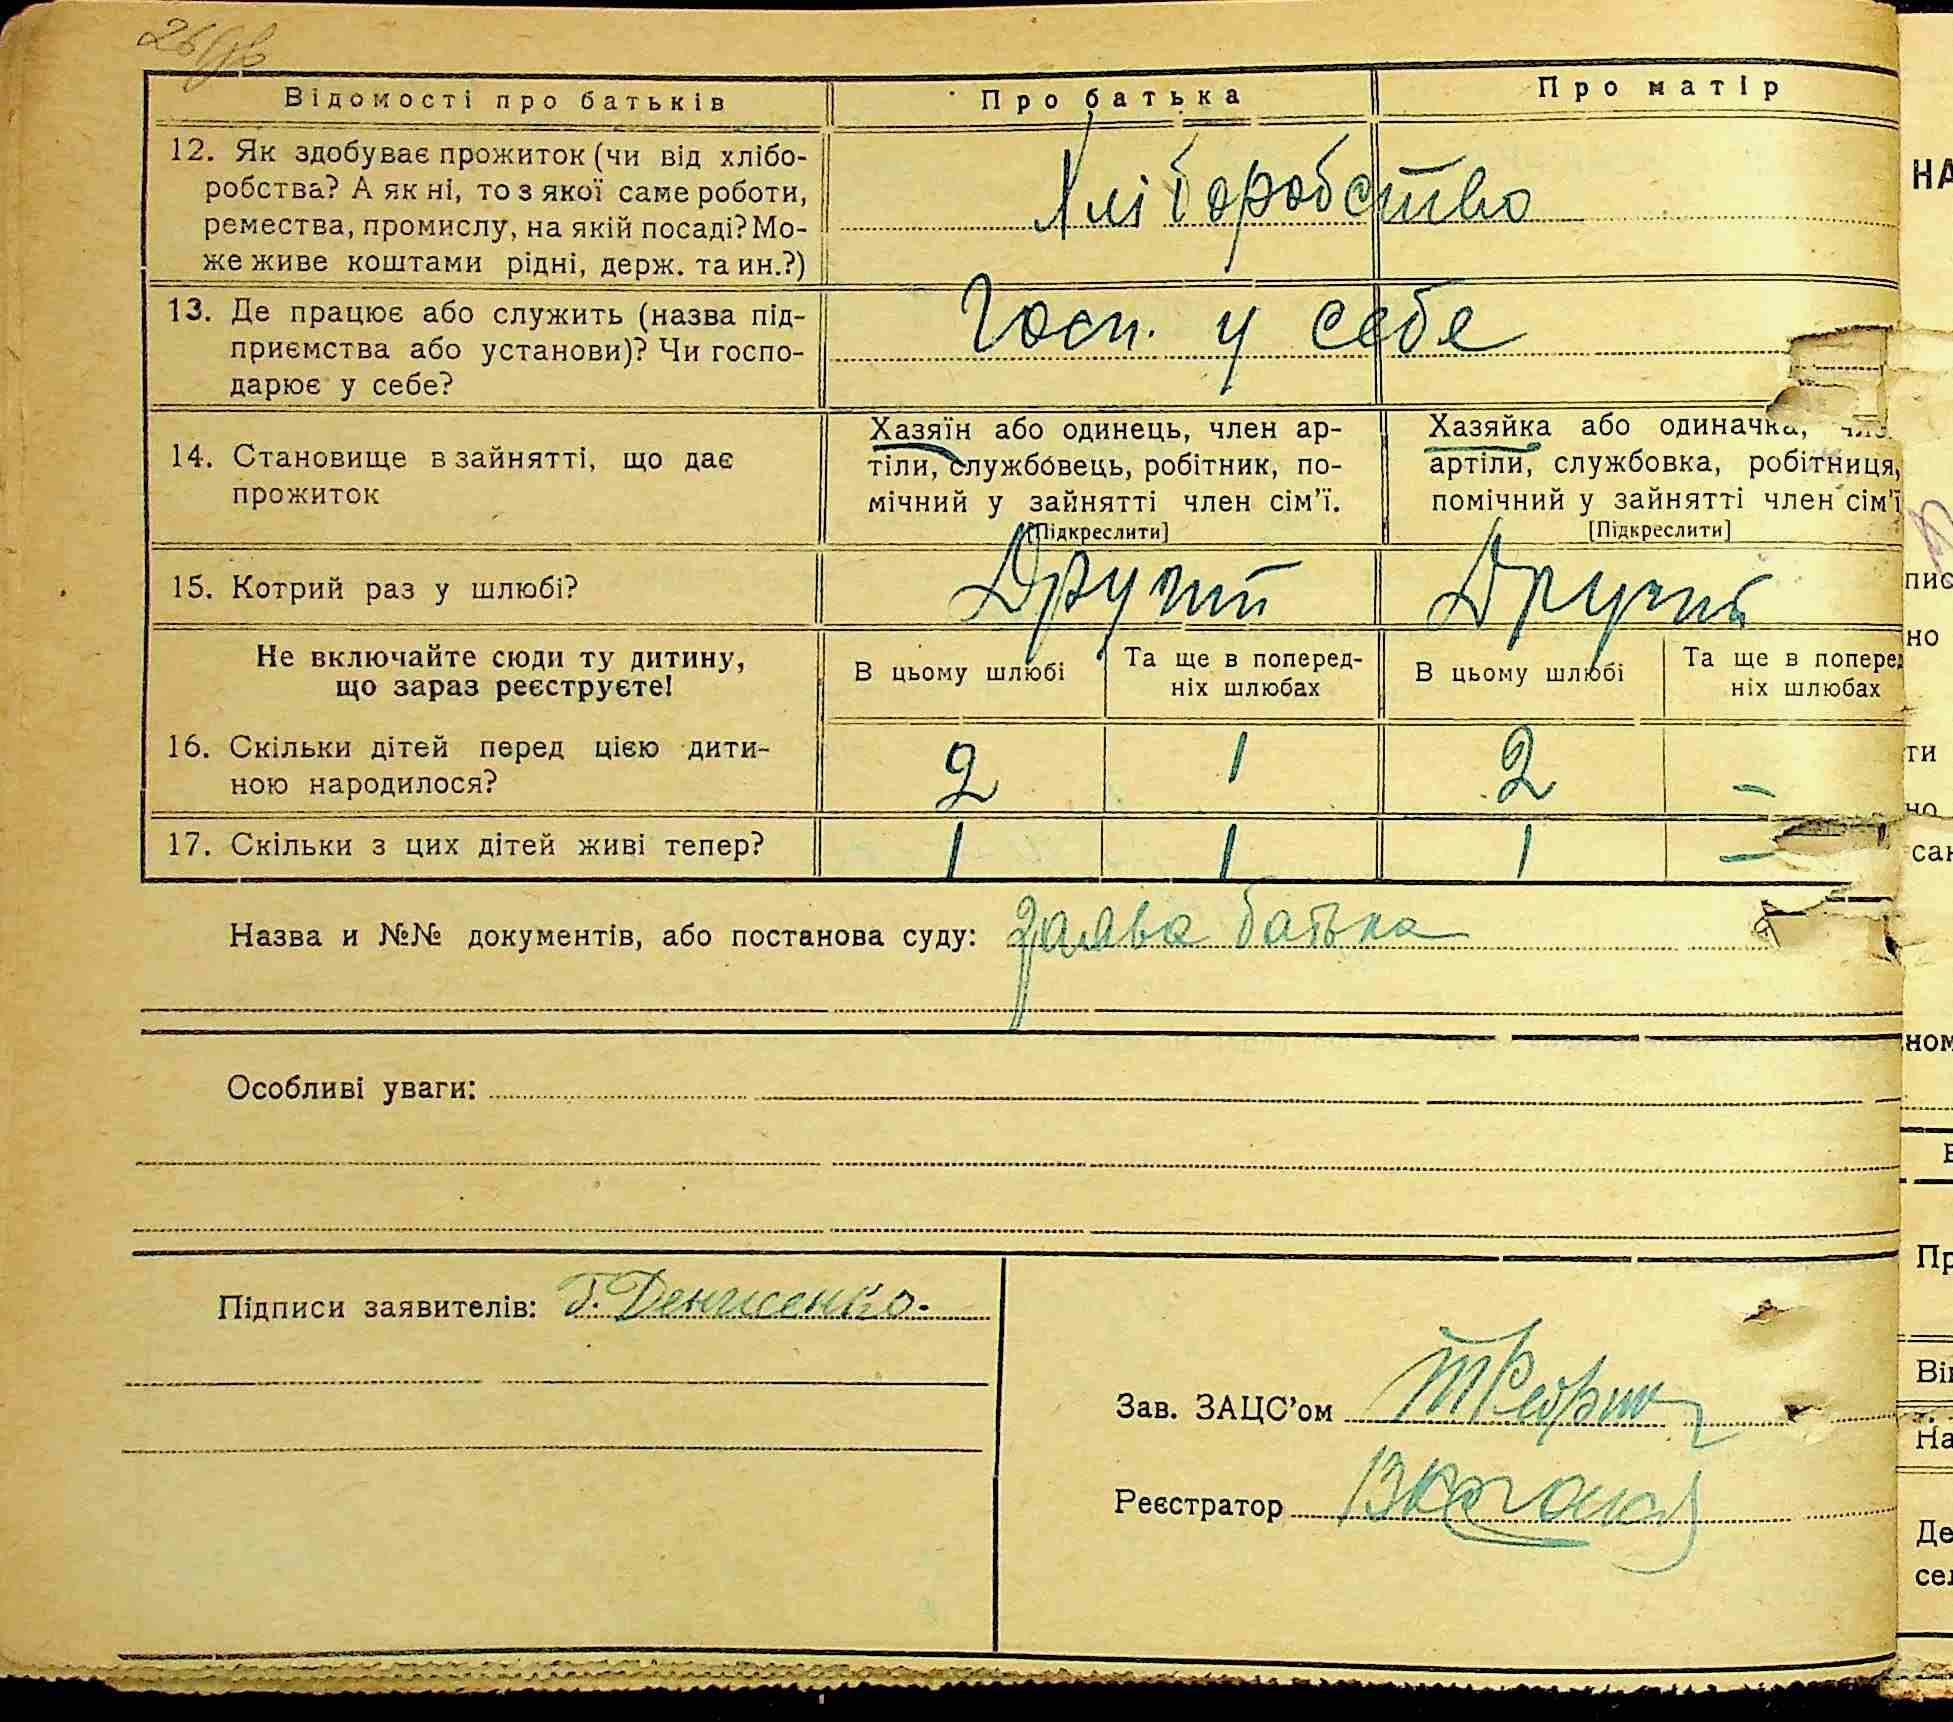 Відомості про батьків Про батька Про матір
12. Як здобуває прожиток (чи від хлібо-
робства? А як ні, то з якої саме роботи,
ремества, промислу, на якій посаді? Мо-
же живе коштами рідні, держ. та ин.?)
Хліборобство
13. Де працює або служить (назва під-
приємства або установи)? Чи госпо-
дарює у себе?
Госп. у себе
14. Становище в зайнятті, що дає
прожиток
Хазяїн або одинець, член ар-
тіли, службовець, робітник, по-
мічний у зайнятті член сім'ї.
[Підкреслити]
Хазяйка або одиначка,
артіли, службовка, робітниця,
помічний у зайнятті член сім'ї
[Підкреслити]
15. Котрий раз у шлюбі? Другий Другий
Не включайте сюди ту дитину,
що зараз реєструєте!
В цьому шлюбі
Та ще в поперед-
ніх шлюбах
В цьому шлюбі
Та ще в поперед
ніх шлюбах
16. Скільки дітей перед цією дити-
ною народилося?
2 1 2 –
17. Скільки з цих дітей живі тепер? 1 1 1 –
Назва и №№ документів, або постанова суду: Заява батька
Особливі уваги:
Підписи заявителів: Г. Денисенко.
Зав. ЗАЦС'ом
Реєстратор